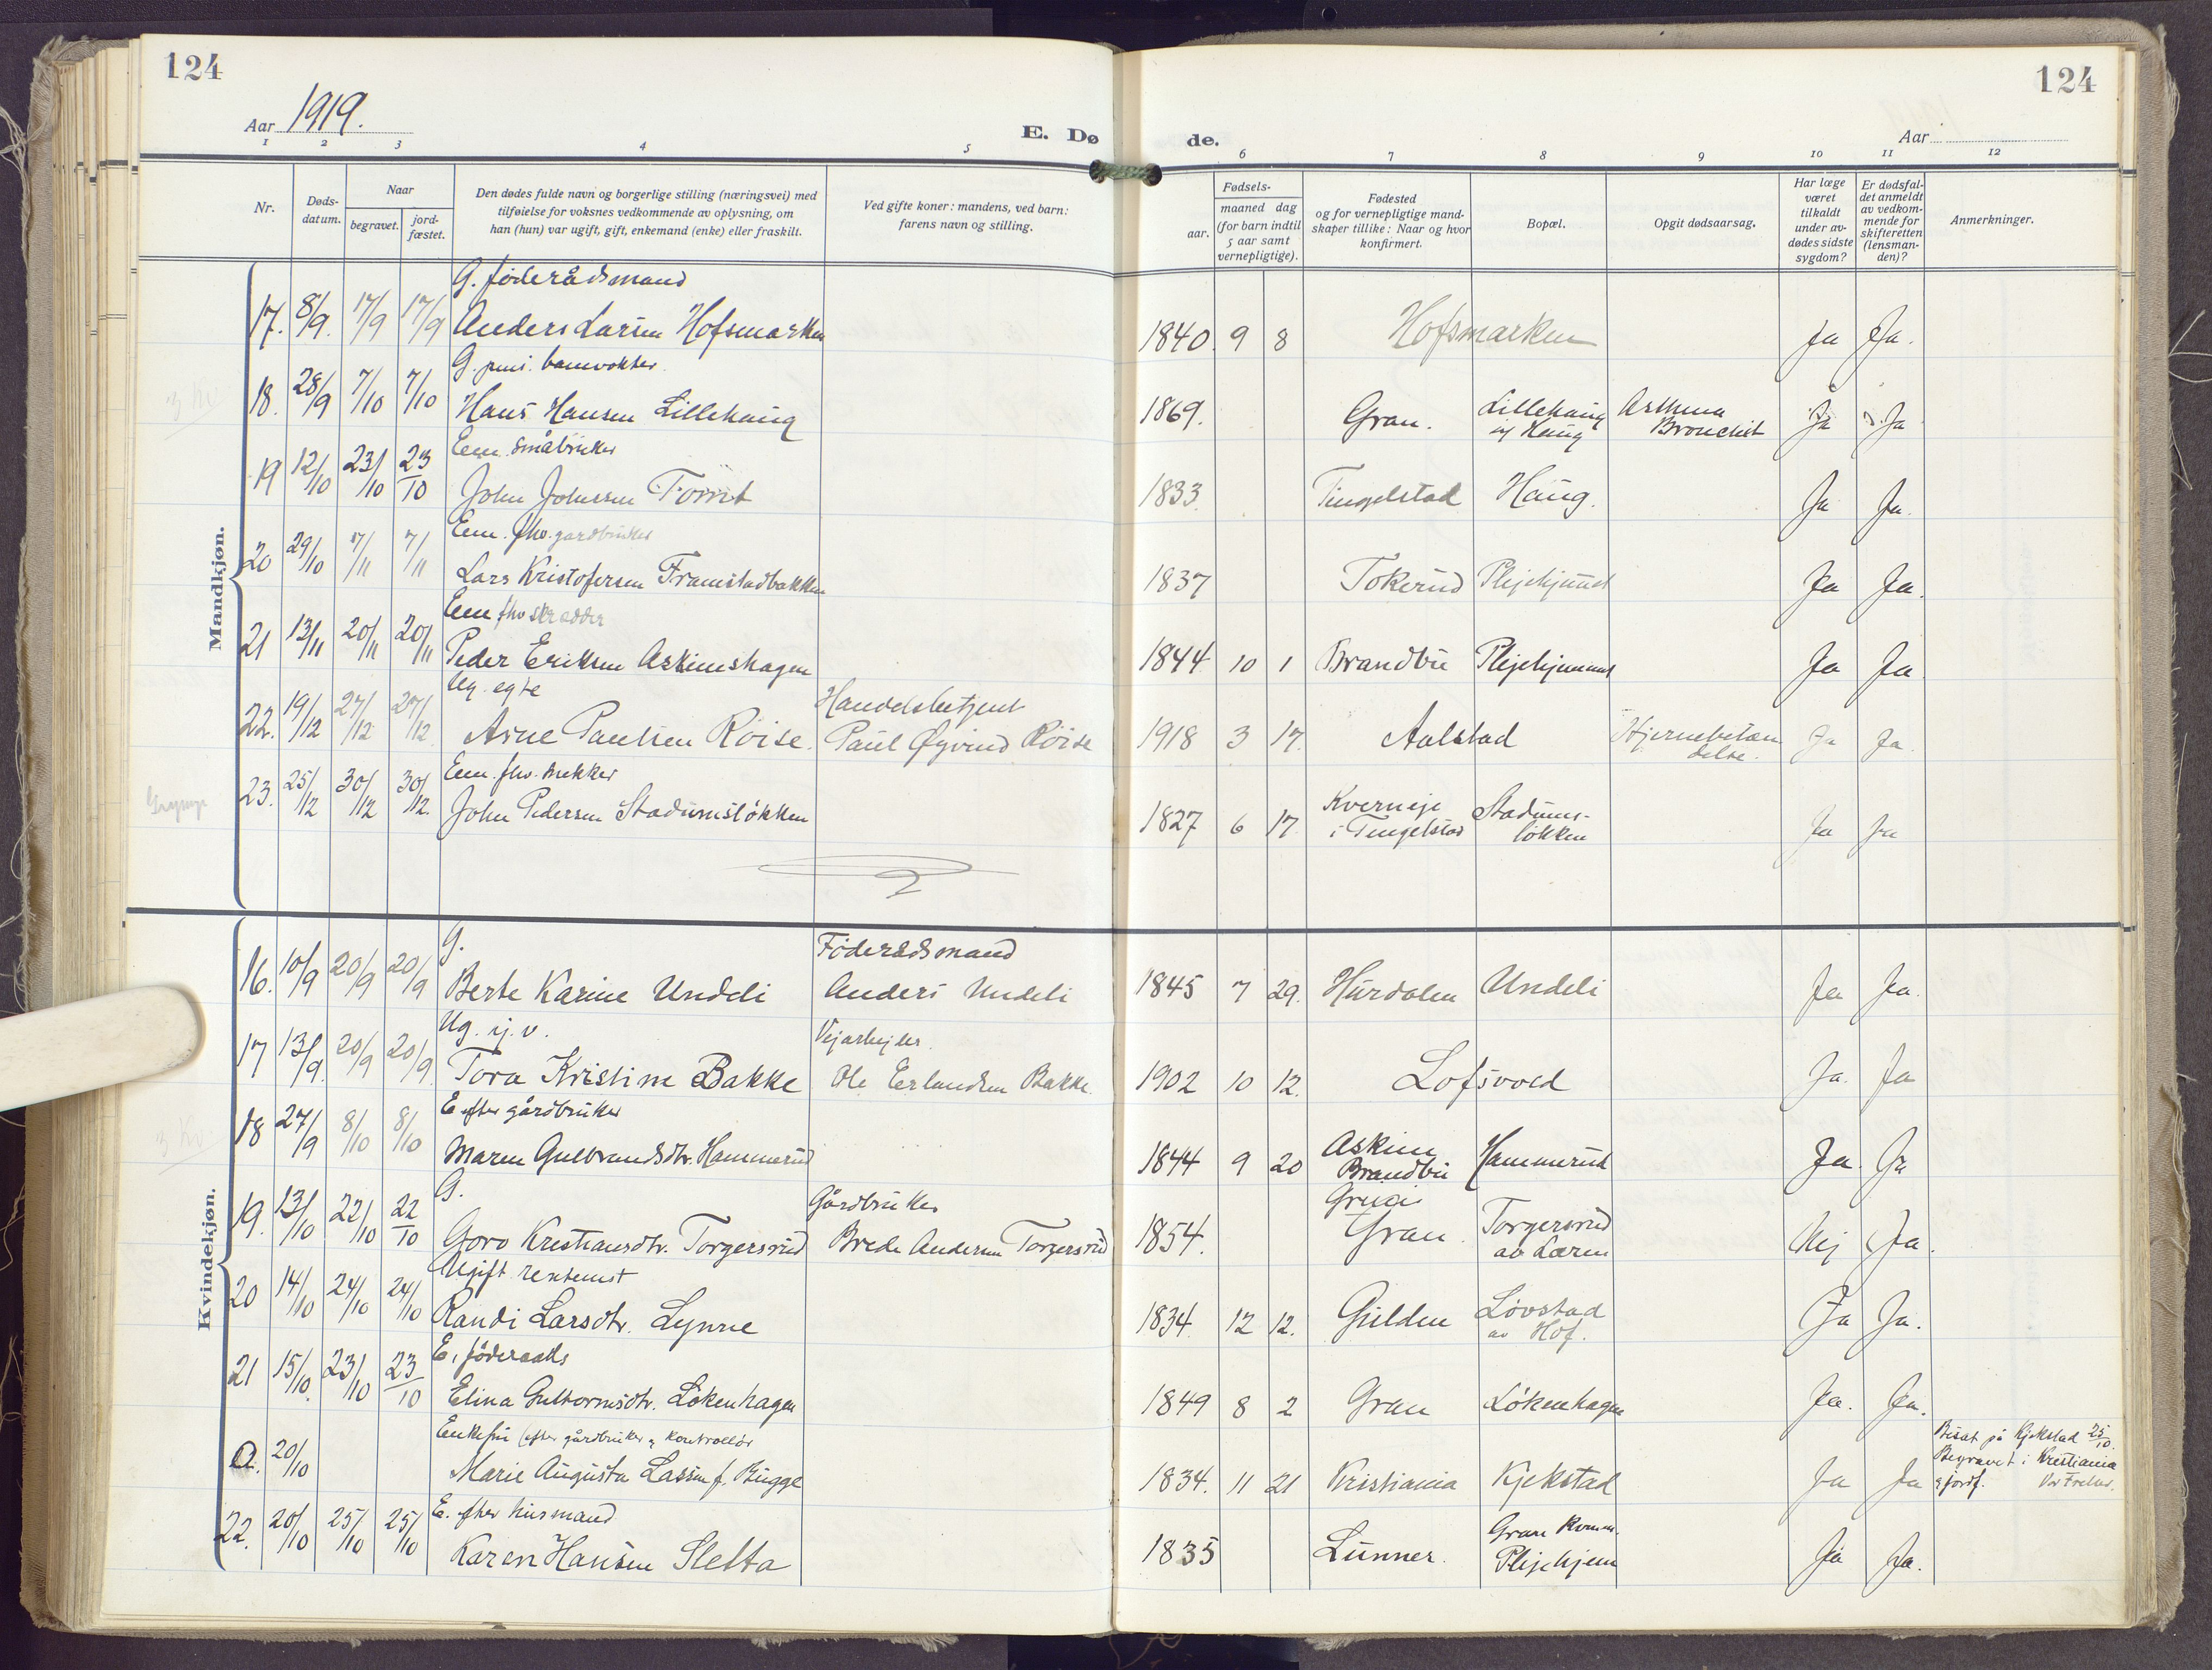 124
124
Aar 1919.
E. Dø de.
Aar
1 2 3 4 5 6 7 8 9 10 11 12
Nr.
Døds-
datum.
Naar
begravet.
jord-
fæstet.
Den dødes fulde navn og borgerlige stilling (næringsvei) med
tilføielse for voksnes vedkommende av oplysning, om
han (hun) var ugift, gift, enkemand (enke) eller fraskilt.
Ved gifte koner: mandens, ved barn:
farens navn og stilling.
Fødsels-
aar.
maaned dag
(for barn indtil
5 aar samt
vernepligtige).
Fødested
og for vernepligtige mand-
skaper tillike: Naar og hvor
konfirmert.
Bopæl.
Opgit dødsaarsag.
Har læge
været
tilkaldt
under av-
dødes sidste
sygdom?
Er dødsfal-
det anmeldt
av vedkom-
mende for
skifteretten
(lensman-
den)?
Anmerkninger.
Mandkjøn.
G. føderådsmand
17. 8/9. 17/9 17/9 Anders Larsen Hofsmarken 1840. 9 8 Hofsmarken Ja Ja.
G. banevokter
18. 28/9 7/10 7/10 Hans Hansen Lillehaug 1869. Gran. Lillehaug av Haug Asthma Bronchit Ja Ja
Em. småbruker
19 12/10 23/10 23/10 John Johnsen 1833. Tingelstad Haug. Ja Ja.
Em. fhv. gardbruker
20 29/10 7/11 7/11 Lars Kristofersen Framstadbakken 1837 Tokerud Plejehjemmet Ja Ja.
Em fhv skrædder
21 13/11 20/11 20/11 Peder Eriksen Askimshagen 1844 10 1 Brandbu Plejehjemmet Ja Ja
Ug. egte Handelsbetjent
22. 19/12 27/12 27/12 Arne Paulsen Röise. Paul Øyvind Röise 1918 3 17. Aalstad Hjernebetæn delse. Ja Ja.
Em. fhv. snekker
23. 25/12 30/12 30/12. John Pedersen Stadumsløkken 1827 6 17 Kverneje i Tingelstad Stadums- løkken Ja Ja
Kvindekjøn.
G. Föderådsmand
16. 10/9 20/9 20/9 Berte Karine Undeli Anders Undeli 1845 7 29. Hurdalen Undeli Ja Ja.
Ug. Vejarbejder
17 13/9. 20/9 20/9. Tora Kristine Bakke Ole Erlandsen Bakke. 1902 10 12. Lofsvold Ja. Ja
3 Kv
E efter gårdbruker
18 27/9 8/10 8/10 Maren Gulbrandsdtr. Hammerud 1844 9 20 Askim Brandbu Hammerud Ja. Ja
G. Gårdbruker
19. 13/10 22/10 22/10 Goro Kristiansdtr. Torgersrud Brede Andersen Torgersrud 1854. Gran. Torgersrud av Læren Nej Ja.
Ugift
20 14/10 24/10 24/10 Randi Larsdtr. Lynne 1834. 12 12. Gulden Lövstad av Hof. Ja Ja.
E. föderaads
21 15/10. 23/10 23/10 Elina Guttormsdtr. Lökenhagen 1849 8 2 Gran Lökenhagen Ja. Ja.
Enkefru (efter gårdbruker & kontrollör
a. 20/10 Marie Augusta Lassen f. Bugge 1834. 11 21 Kristiania Kjekstad Ja Ja
Bisat på Kjekstad 25/10.
Begravet i Kristiania
& jordf. Vor Frelser.
E. efter husmand
22. 20/10 25/10 25/10 Karen Hansen Sletta 1835 Lunner. Gran komm. Plejehjem Ja Ja.